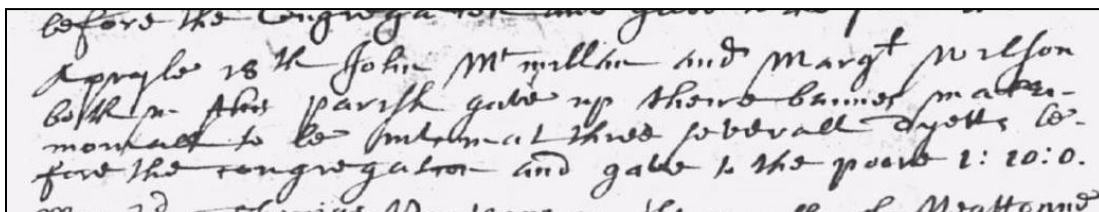 before the Congregation and gave to the
Apryle 18th John Mcmillan and Margt Willson
both in this parish gave up there bannes matri-
moniall to be intimat three severall dyetts be-
fore the congregation and gave to the poore 1: 10:0.